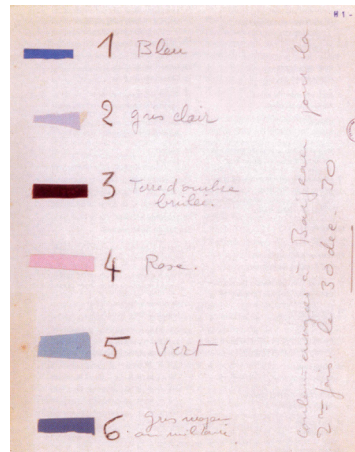 81-
1 Bleu
2 gris clair
3 Terre d'ombre
brulée.
4 Rose.
5 Vert
6. gris moyen
ou militaire
Couleurs envoyées à pour la
2me fois le 30 dec. 30